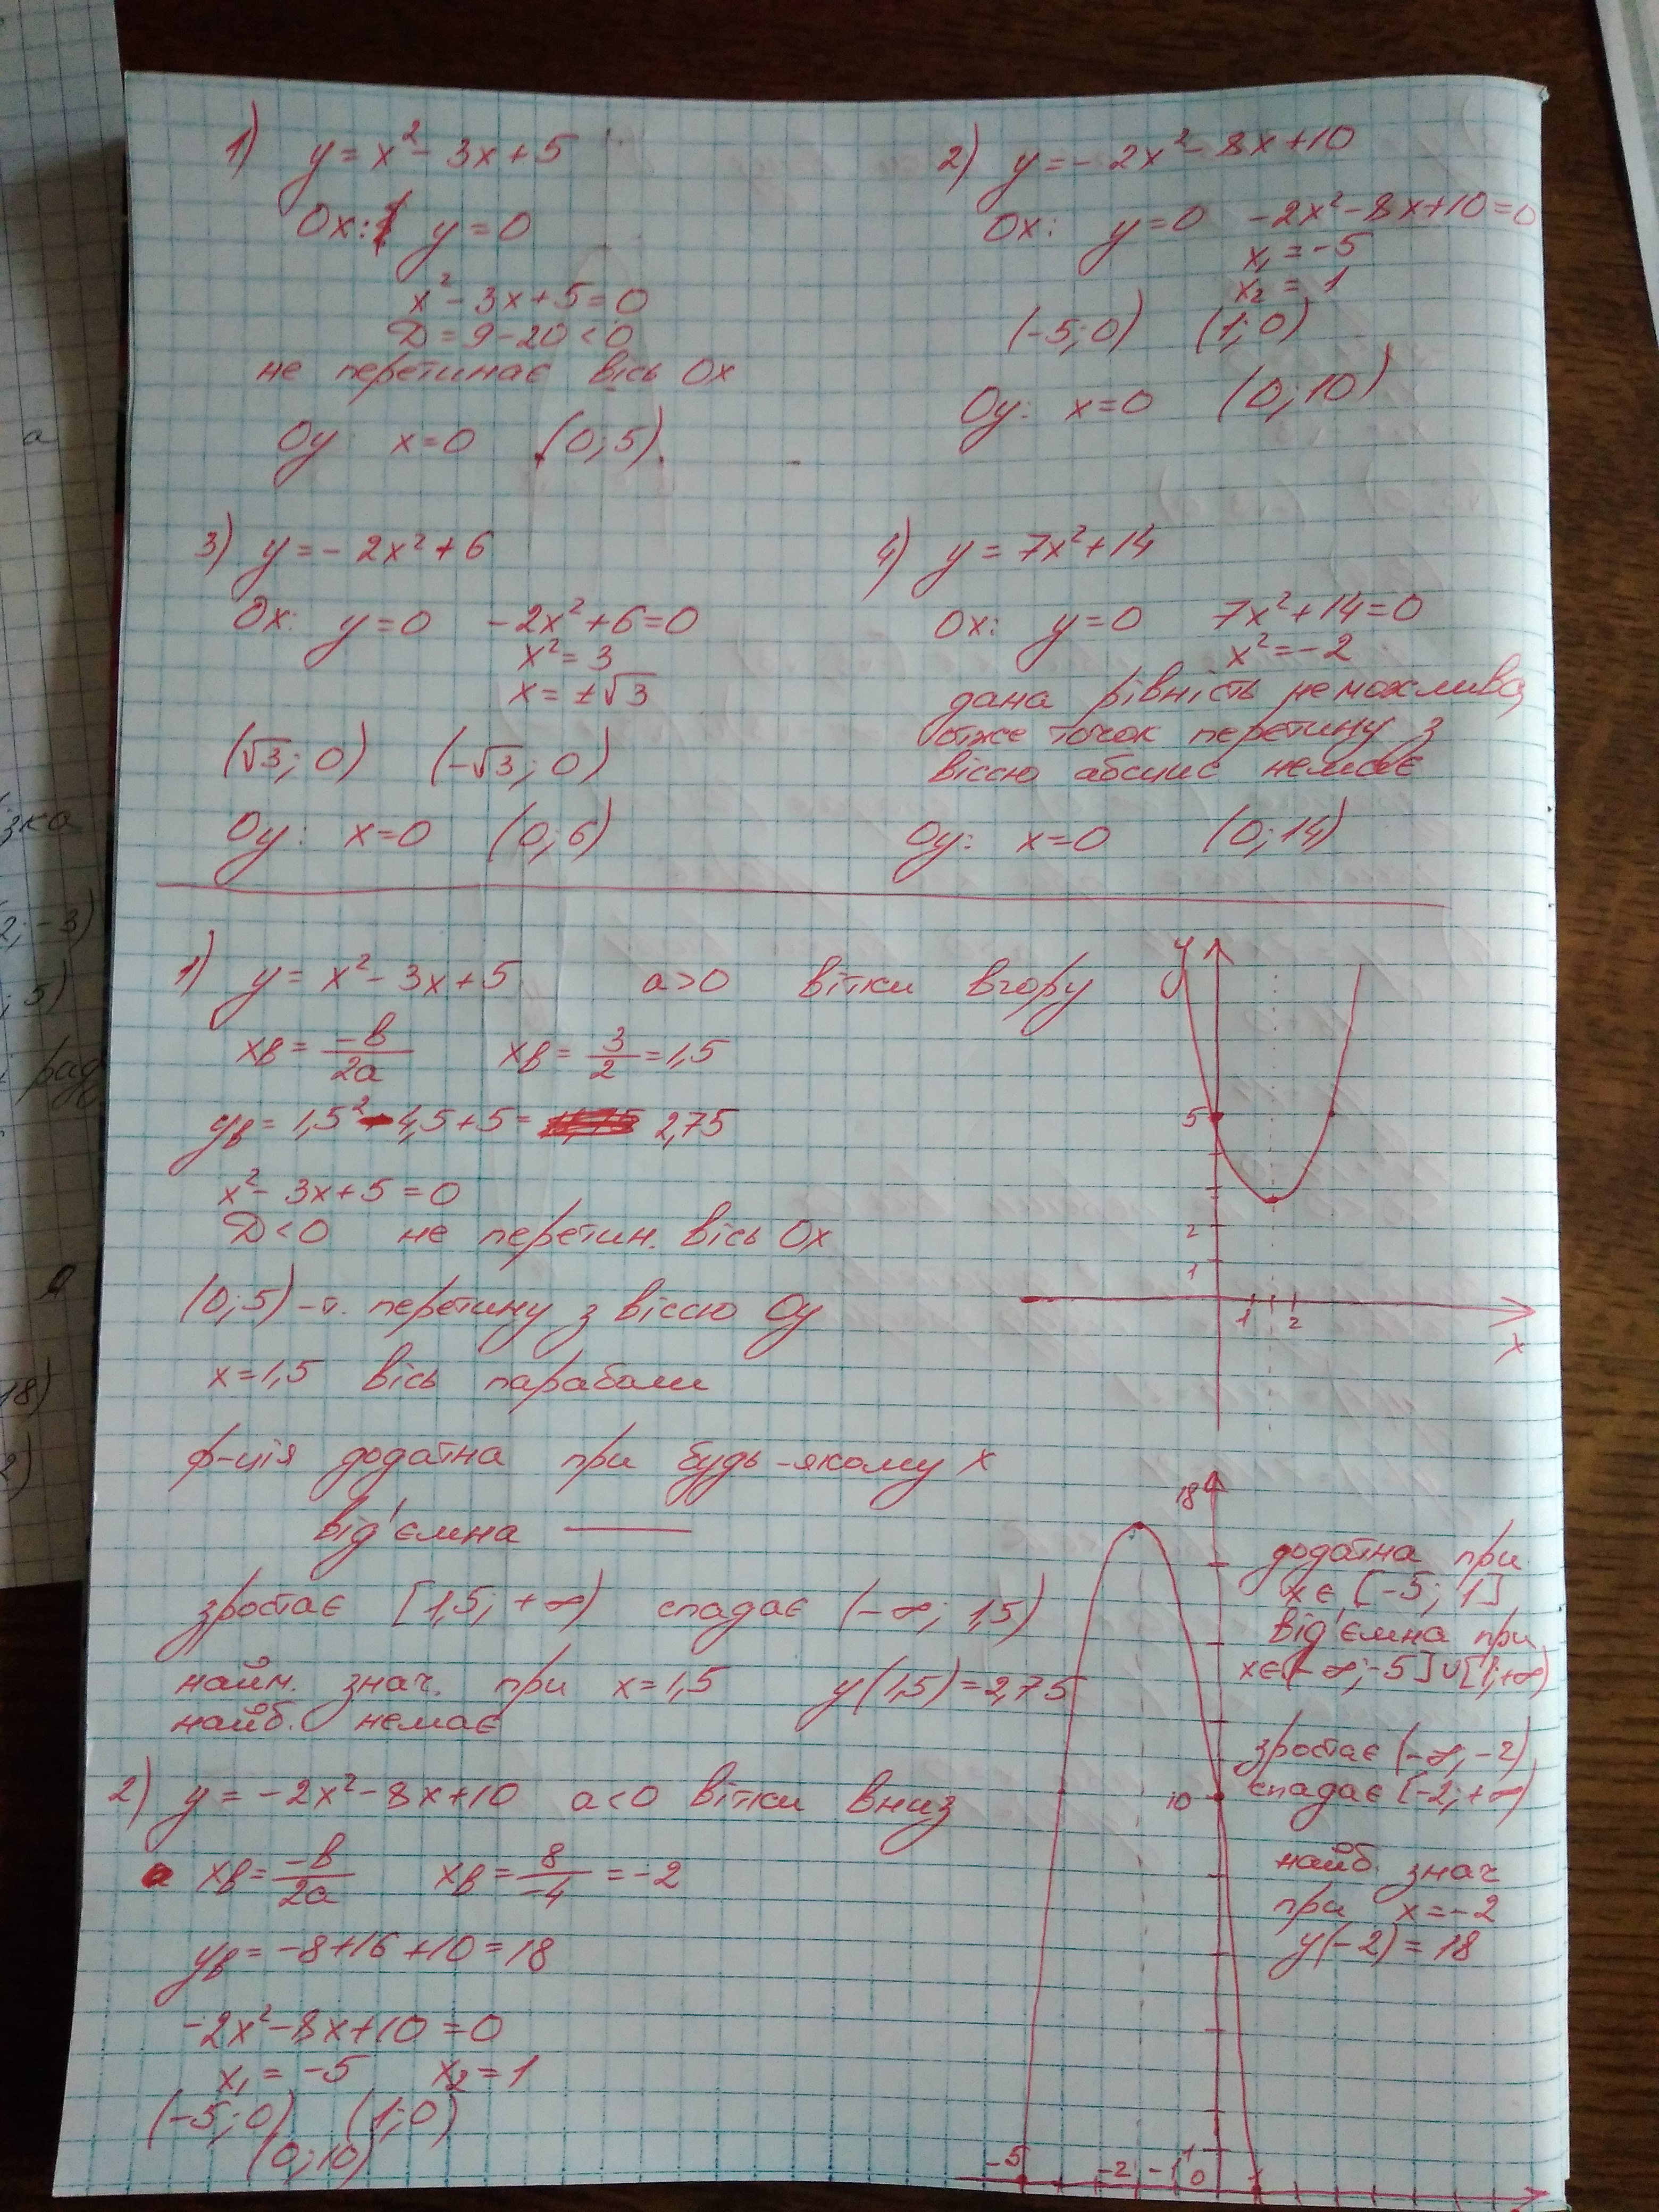 1) y = x² - 3x + 5
Ox: y = 0
x² - 3x + 5 = 0
D = 9 - 20 < 0
не перетинає вісь Ox
Oy: x = 0 (0; 5)
2) y = - 2x² - 8x + 10
Ox: y = 0 -2x² - 8x + 10 = 0
x₁ = -5
x₂ = 1
(-5; 0) (1; 0)
Oy: x = 0 (0; 10)
3) y = - 2x² + 6
Ox: y = 0 - 2x² + 6 = 0
x² = 3
x = ±√3
(√3; 0) (-√3; 0)
Oy: x = 0 (0; 6)
4) y = 7x² + 14
Ox: y = 0 7x² + 14 = 0
x² = -2
дана рівність неможлива,
отже точок перетину з
віссю абсцис немає
Oy: x = 0 (0; 14)
1) y = x² - 3x + 5 a > 0 вітки вгору
xв = -в/2a xв = 3/2 = 1,5
yв = 1,5² - 4,5 + 5 = 2,75
x² - 3x + 5 = 0
D < 0 не перетин. вісь Ox
(0; 5) - т. перетину з віссю Oy
x = 1,5 вісь параболи
ф-ція додатна при будь-якому x
від'ємна ———
зростає [1,5; +∞) спадає (-∞; 1,5)
найм. знач. при x = 1,5 y(1,5) = 2,75
найб. немає
y
5
2
1
1 2
x
2) y = -2x² - 8x + 10 a < 0 вітки вниз
xв = -в/2a xв = 8/-4 = -2
yв = -8 + 16 + 10 = 18
-2x² - 8x + 10 = 0
x₁ = -5 x₂ = 1
(-5; 0) (1; 0)
(0; 10)
18
10
1
-5 -2 -1 0 1
додатна при
x ∈ [-5; 1]
від'ємна при
x ∈ (-∞; -5] ∪ [1; +∞)
зростає (-∞; -2)
спадає [-2; +∞)
найб. знач
при x = -2
y(-2) = 18
а
зка
2; -3)
; 5)
18)
2)